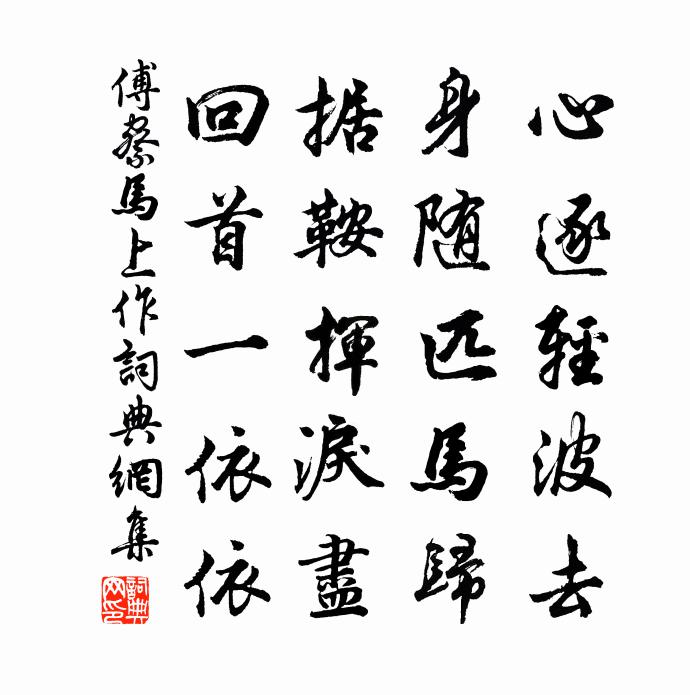 心逐輕波去
身随匹馬歸
据鞍揮淚盡
回首一依依
傅察馬上作詞典網集
詞典网印